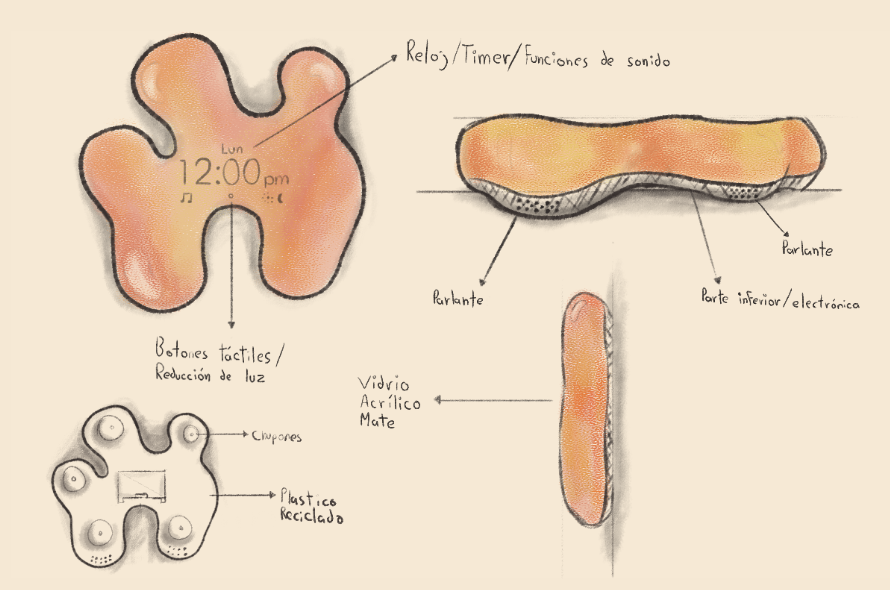 Reloj/Timer/Funciones de sonido
Lun
12:00pm
Botones táctiles/
Reducción de luz
Parlante
Parlante
Parte inferior/electrónica
Vidrio
Acrílico
Mate
Chupones
Plastico
Reciclado